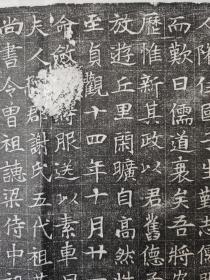 國子生勤志
而歎曰儒道衰矣吾將安
歷惟新其政以君舊德而
放遊丘里閑曠自高然性
至貞觀十四年十月廿
命斂時服送以素車
夫人郡謝氏五代祖
尚書令曾祖譓梁侍中祖